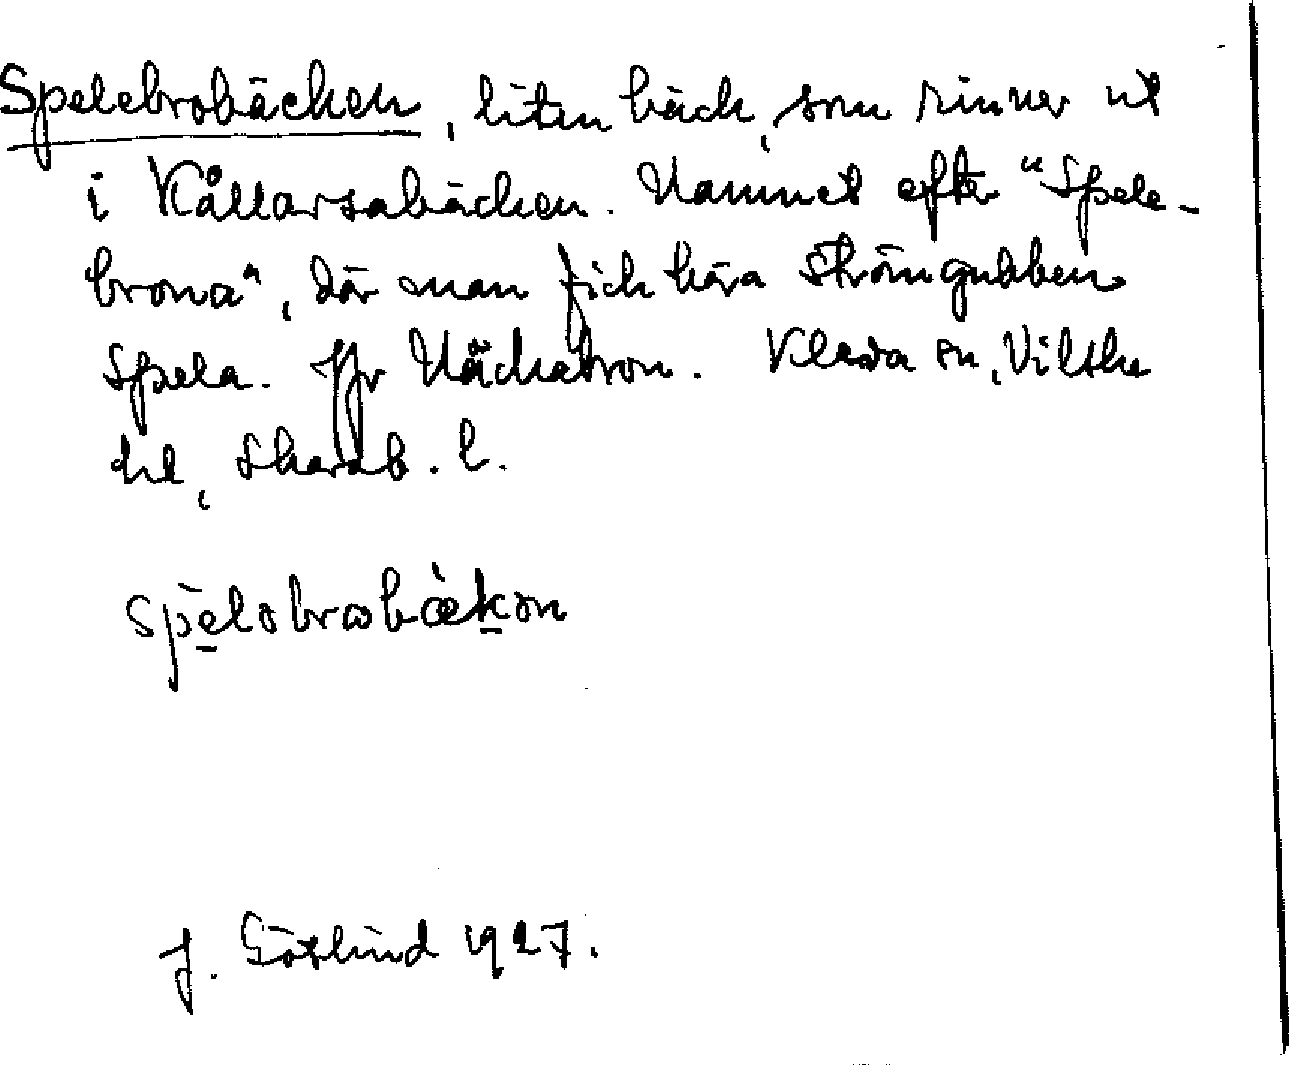 Spelebrobäcken, liten bäck, som rinner ut
i Kållarsabäcken. Namnet efter "Spele-
brona", där man fick höra strömgubben
spela. Jfr Näckabron. Kleva sn, Vilske
hd, Skarab. l.
spèlobrobækon
J. Götlind 1927.